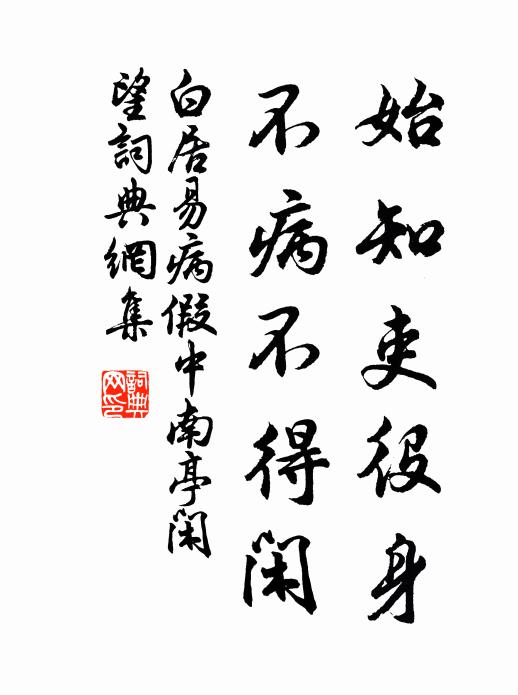 始知吏役身
不病不得闲
白居易病假中南亭闲
望詞典網集
詞典
网印